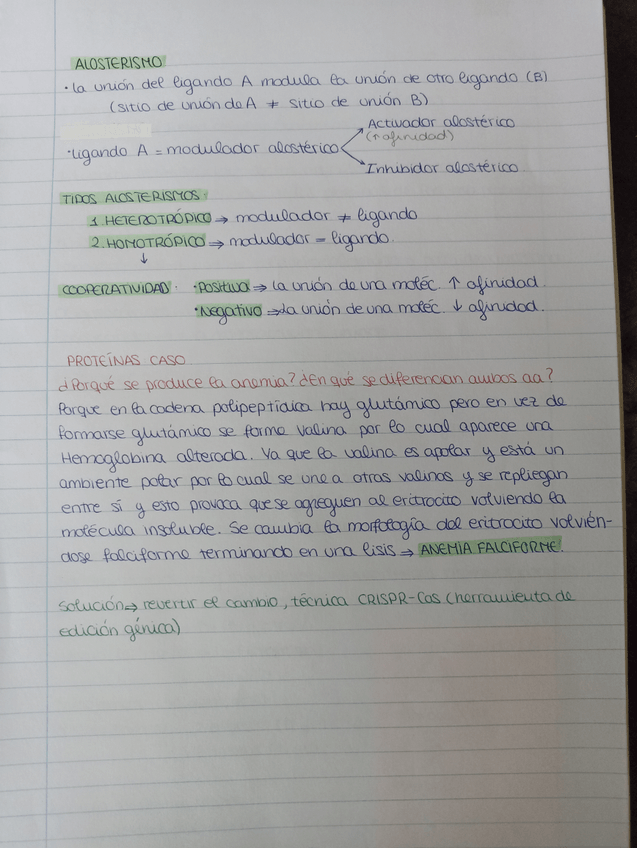 ALOSTERISMO
· La unión del ligando A modula la unión de otro ligando (B)
(sitio de unión de A ≠ sitio de unión B)
Activador alostérico
(↑ afinidad)
· Ligando A = modulador alostérico
Inhibidor alostérico
TIPOS ALOSTERISMOS:
1. HETEROTRÓPICO → modulador ≠ ligando
2. HOMOTRÓPICO → modulador = ligando.
↓
COOPERATIVIDAD: · Positiva → la unión de una moléc. ↑ afinidad.
· Negativo → la unión de una moléc. ↓ afinidad.
PROTEÍNAS CASO
¿Porqué se produce la anemia? ¿En qué se diferencian ambos aa?
Porque en la cadena polipeptídica hay glutámico pero en vez de
formarse glutámico se forma valina por lo cual aparece una
Hemoglobina alterada. Ya que la valina es apolar y está en un
ambiente polar por lo cual se une a otras valinas y se repliegan
entre sí y esto provoca que se agreguen al eritrocito volviendo la
molécula insoluble. Se cambia la morfología del eritrocito volvién-
dose falciforme terminando en una lisis → ANEMIA FALCIFORME.
Solución → revertir el cambio, técnica CRISPR-Cas (herramienta de
edición génica)